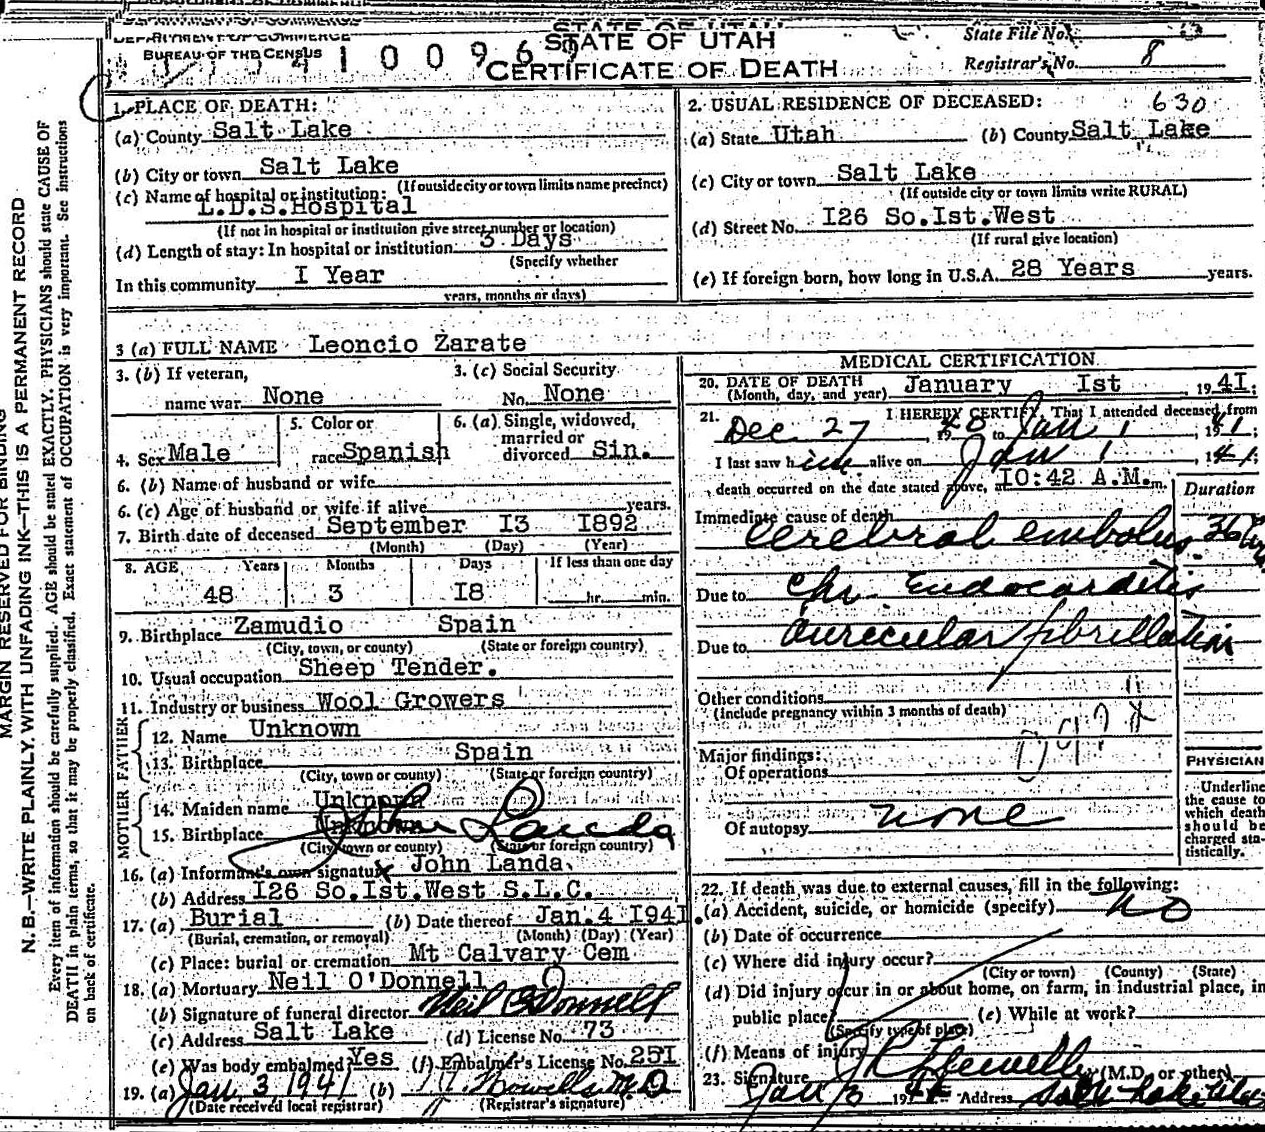 DEPARTMENT OF COMMERCE
BUREAU OF THE CENSUS
STATE OF UTAH
CERTIFICATE OF DEATH
State File No.
Registrar's No. 8
1. PLACE OF DEATH:
(a) County Salt Lake
(b) City or town Salt Lake
(If outside city or town limits name precinct)
(c) Name of hospital or institution:
L.D.S.Hospital
(If not in hospital or institution give street number or location)
(d) Length of stay: In hospital or institution 3 Days
(Specify whether
In this community I Year
years, months or days)
2. USUAL RESIDENCE OF DECEASED: 630
(a) State Utah (b) County Salt Lake
(c) City or town Salt Lake
(If outside city or town limits write RURAL)
(d) Street No. I26 So.Ist.West
(If rural give location)
(e) If foreign born, how long in U.S.A. 28 Years years.
3 (a) FULL NAME Leoncio Zarate
3. (b) If veteran, name war None
3. (c) Social Security No. None
4. Sex Male
5. Color or race Spanish
6. (a) Single, widowed, married or divorced Sin.
6. (b) Name of husband or wife
6. (c) Age of husband or wife if alive years.
7. Birth date of deceased September I3 I892
(Month) (Day) (Year)
8. AGE Years Months Days If less than one day
48 3 I8 hr. min.
9. Birthplace Zamudio Spain
(City, town, or county) (State or foreign country)
10. Usual occupation Sheep Tender.
11. Industry or business Wool Growers
FATHER
12. Name Unknown
13. Birthplace Spain
(City, town or county) (State or foreign country)
MOTHER
14. Maiden name Unknown
15. Birthplace Unknown
(City, town or county) (State or foreign country)
John Landa
16. (a) Informant's own signature x John Landa
(b) Address I26 So.Ist.West S.L.C.
17. (a) Burial (b) Date thereof Jan.4 I94I.
(Burial, cremation, or removal) (Month) (Day) (Year)
(c) Place: burial or cremation Mt Calvary Cem
18. (a) Mortuary Neil O'Donnell
(b) Signature of funeral director Neil O'Donnell
(c) Address Salt Lake (d) License No. 73
(e) Was body embalmed Yes (f) Embalmer's License No. 25I
19. (a) Jan 3, 1941 (b) M.D.
(Date received local registrar) (Registrar's signature)
MEDICAL CERTIFICATION
20. DATE OF DEATH January Ist 194I.
(Month, day, and year)
21. I HEREBY CERTIFY, That I attended deceased from
Dec 27, 1940 to Jan 1, 1941;
I last saw him alive on Jan 1, 1941,
death occurred on the date stated above, at I0:42 A.M. m.
Duration
Immediate cause of death
Cerebral embolus 36 hrs.
Due to Chr. Endocarditis
Due to Auricular fibrillation
Other conditions
(include pregnancy within 3 months of death)
Major findings:
Of operations
Of autopsy none
PHYSICIAN
Underline the cause to which death should be charged statistically.
22. If death was due to external causes, fill in the following:
(a) Accident, suicide, or homicide (specify) no
(b) Date of occurrence
(c) Where did injury occur?
(City or town) (County) (State)
(d) Did injury occur in or about home, on farm, in industrial place, in
public place? (e) While at work?
(Specify type of place)
(f) Means of injury
23. Signature (M.D. or other)
Address Salt Lake
MARGIN RESERVED FOR BINDING
N. B.—WRITE PLAINLY, WITH UNFADING INK—THIS IS A PERMANENT RECORD
Every item of information should be carefully supplied. AGE should be stated EXACTLY. PHYSICIANS should state CAUSE OF
DEATH in plain terms, so that it may be properly classified. Exact statement of OCCUPATION is very important. See instructions
on back of certificate.